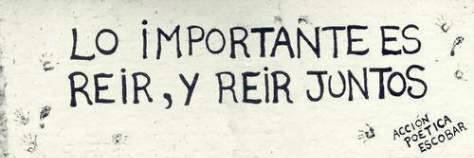 LO iMPORTANTE ES
REiR, Y REiR JUNTOS
ACCIÓN
POETICA
ESCOBAR